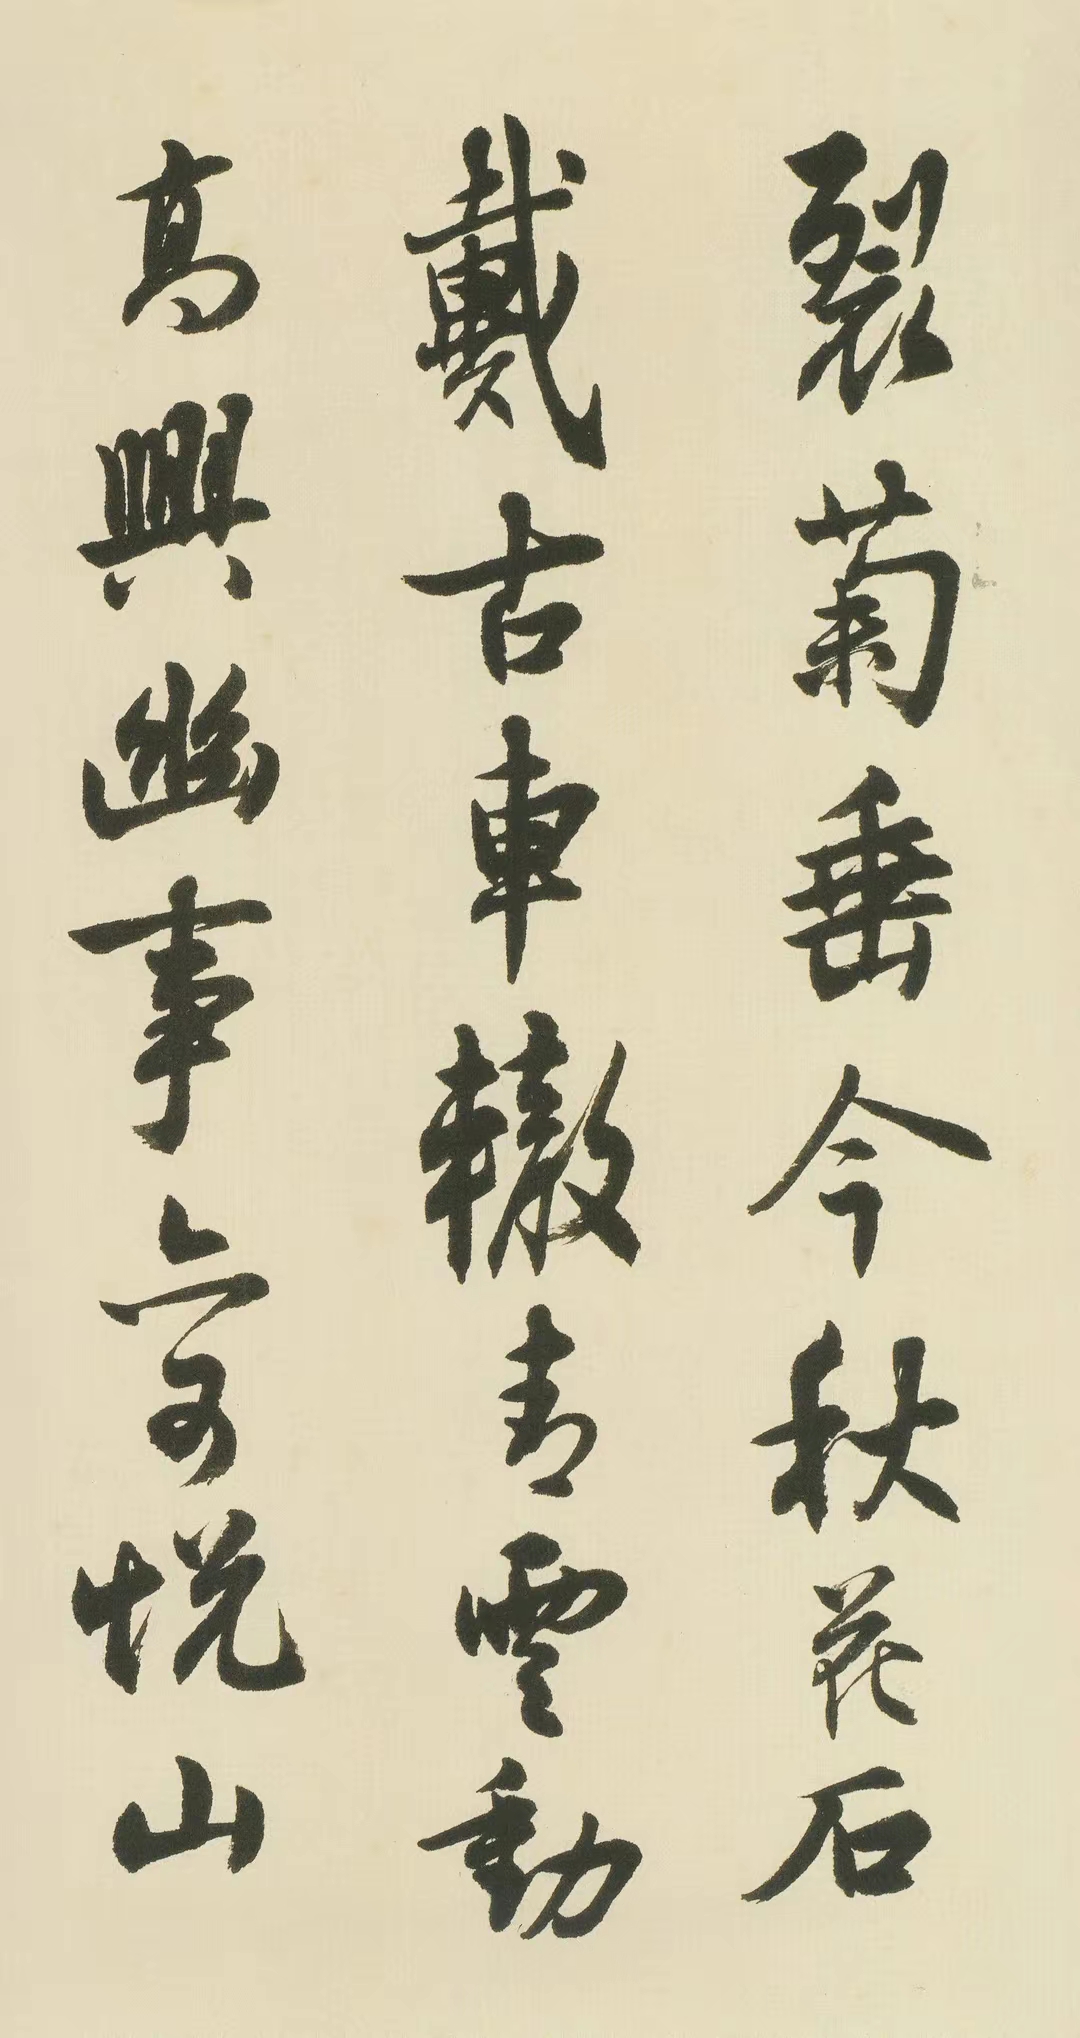 裂菊垂今秋花石
戴古車轍青雲動
高興幽事亦可悅山